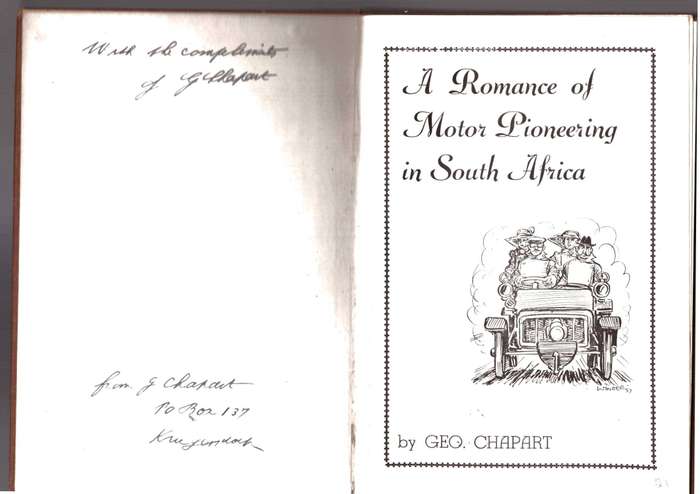 With the compliments
of G Chapart
from G Chapart
PO Box 137
Krugersdorp
A Romance of
Motor Pioneering
in South Africa
by GEO. CHAPART